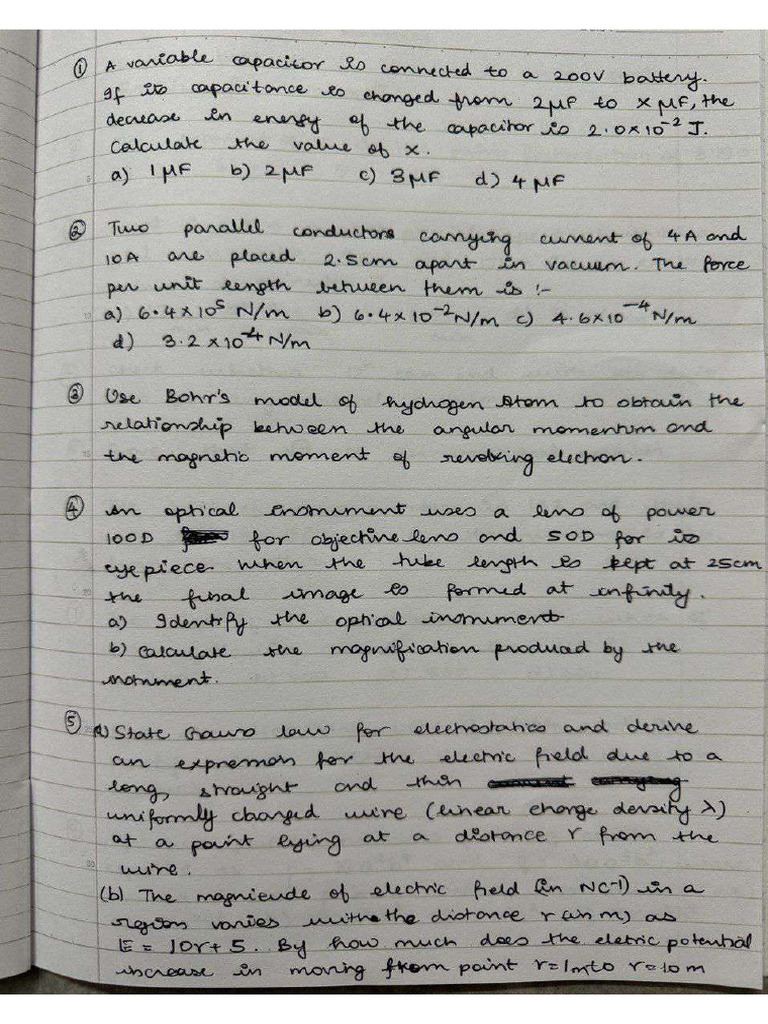 ① A variable capacitor is connected to a 200V battery.
If its capacitance is changed from 2μF to x μF, the
decrease in energy of the capacitor is 2.0x10⁻² J.
Calculate the value of x.
a) 1μF b) 2μF c) 3μF d) 4μF
② Two parallel conductors carrying current of 4A and
10A are placed 2.5cm apart in vacuum. The force
per unit length between them is :-
a) 6.4x10⁵ N/m b) 6.4x10⁻² N/m c) 4.6x10⁻⁴ N/m
d) 3.2x10⁻⁴ N/m
③ Use Bohr's model of hydrogen atom to obtain the
relationship between the angular momentum and
the magnetic moment of revolving electron.
④ An optical instrument uses a lens of power
100D for objective lens and 50D for its
eyepiece when the tube length is kept at 25cm
the final image is formed at infinity.
a) Identify the optical instrument
b) Calculate the magnification produced by the
instrument.
⑤ a) State Gauss law for electrostatics and derive
an expression for the electric field due to a
long, straight and thin
uniformly charged wire (linear charge density λ)
at a point lying at a distance r from the
wire.
(b) The magnitude of electric field (in NC⁻¹) in a
region varies with the distance r (in m) as
E = 10r + 5. By how much does the eletric potential
increase in moving from point r=1m to r=10m